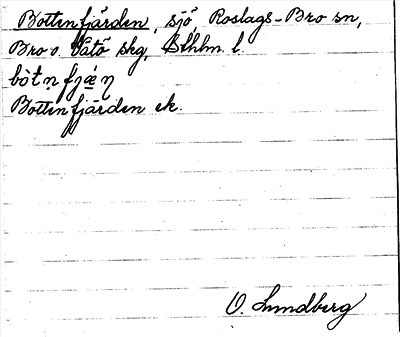 Bottenfjärden, sjö, Roslags-Bro sn,
Bro o. Vätö skg, Sthlm. l.
bòtṇfjæṇ
Bottenfjärden ek.
O. Lundberg